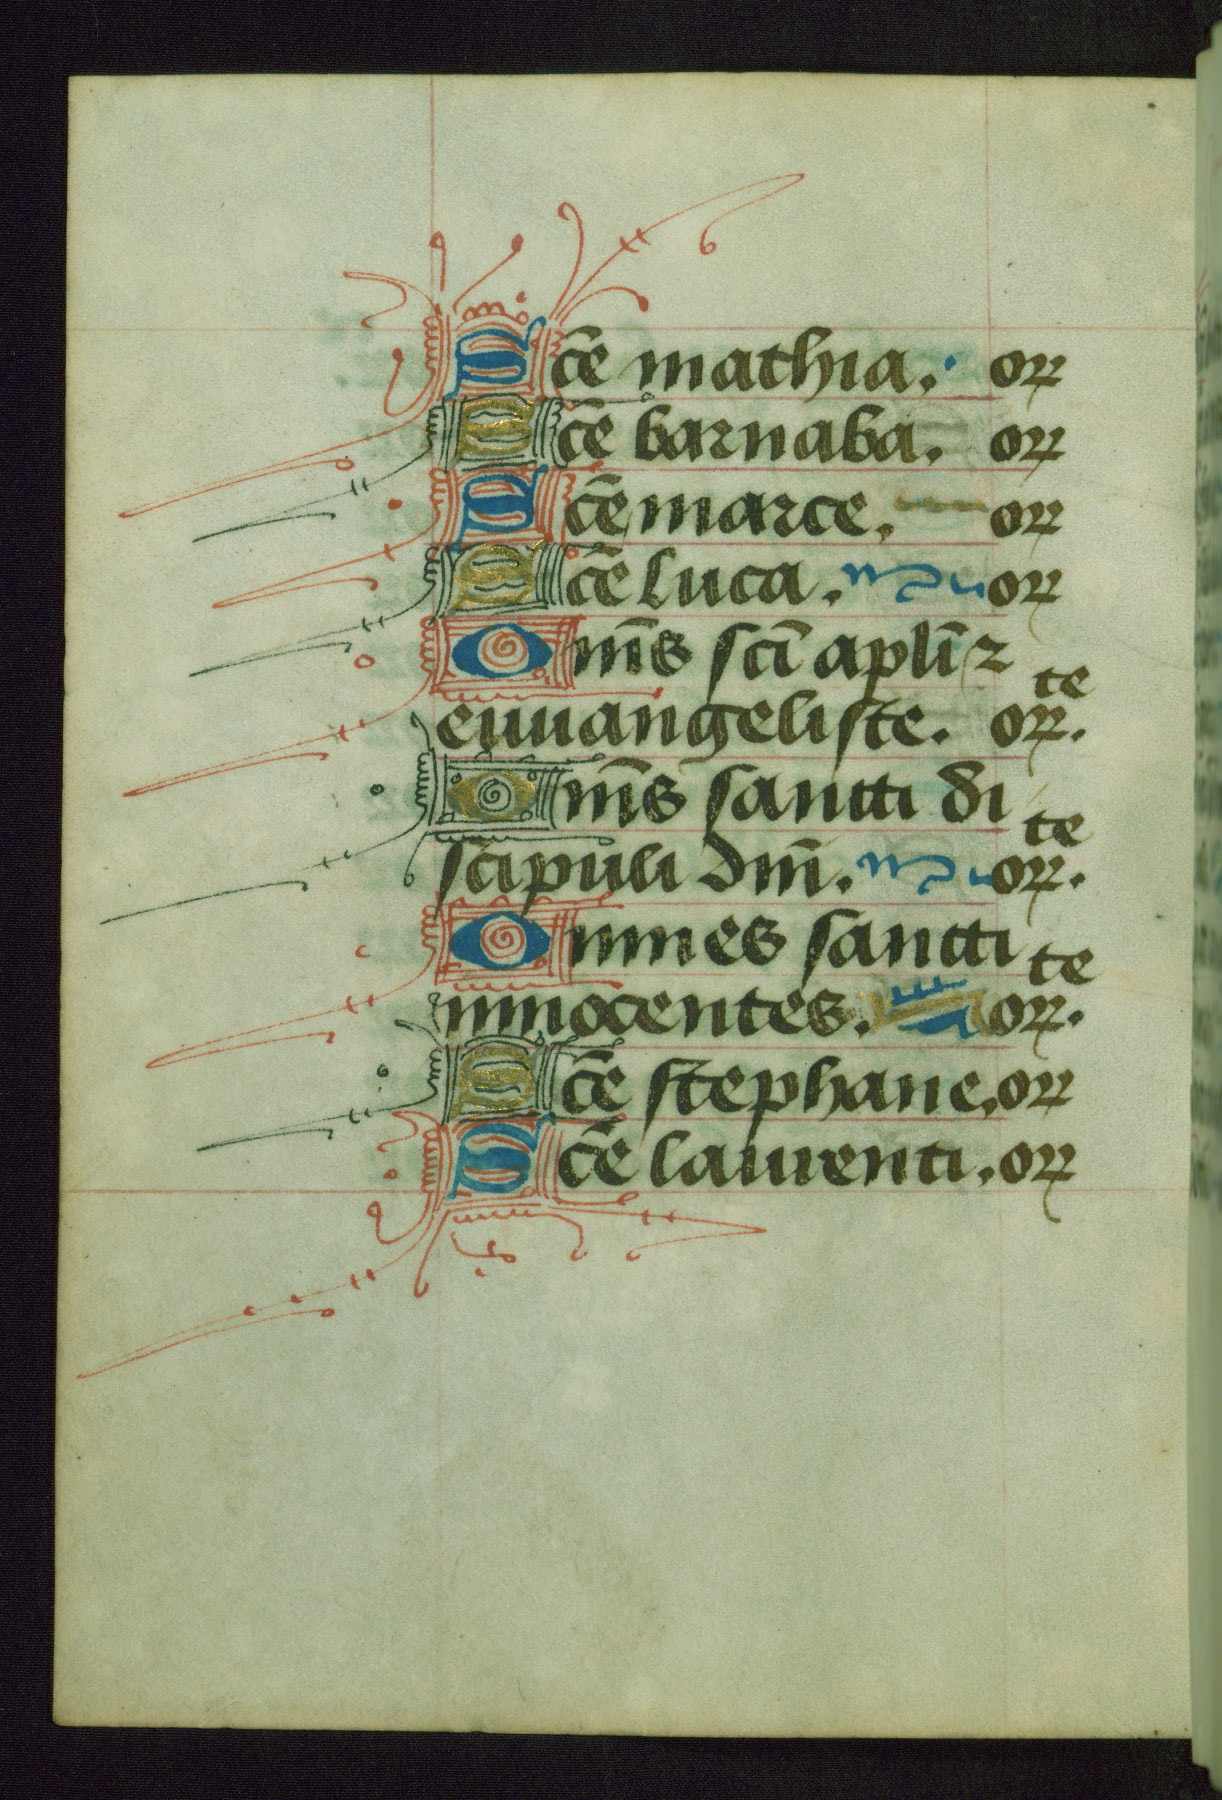 Sce̅ mathia. or
Sce̅ barnaba. or
Sce̅ marce. or
Sce̅ luca. or
Om̅s sci̅ apli̅ ꝛ
euuangeliste. or te.
Om̅s sancti di
scipuli dm̅. or te.
Omnes sancti
innocentes. or te.
Sce̅ stephane. or
Sce̅ laurenti. or